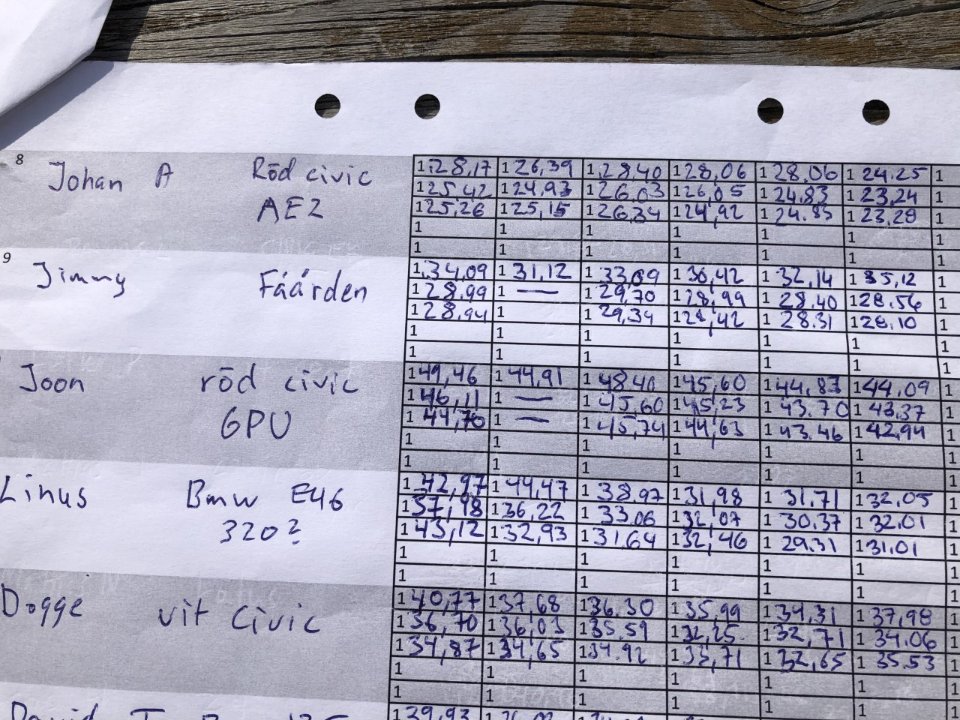 8 Johan A Röd civic 128,17 126,39 128,40 128,06 128,06 124.25 1
AE2 125,42 124,93 126,03 126,05 124,83 123,24 1
125,26 125,15 126,34 124,92 124.83 123,28 1
1 1 1 1 1 1 1
1 1 1 1 1 1 1
9 Jimmy Fáárden 134,09 131,12 133,09 130,42 132,14 135,12 1
128,99 1 — 129,70 128,99 128,40 128,56 1
128,94 1 — 129,34 128,42 128.31 128.10 1
1 1 1 1 1 1 1
1 1 1 1 1 1 1
Joon röd civic 149,46 144,91 148.40 145,60 144,83 144,09 1
GPU 146,11 1 — 145,60 145,23 143.70 143,37 1
144,70 1 — 145,74 144,63 143.46 142,94 1
1 1 1 1 1 1 1
1 1 1 1 1 1 1
Linus Bmw E46 142,97 144,47 138,97 131,98 131,71 132,05 1
320? 137,48 136,22 133,06 132,07 130,37 132,01 1
143,12 132,93 131.64 132,46 129.31 131.01 1
1 1 1 1 1 1 1
1 1 1 1 1 1 1
Dogge vit Civic 140,77 137,68 136.30 135,99 134,31 137,98 1
136,70 136,03 135,59 132,25 132,71 134.06 1
134,87 134,65 134.92 135,71 132,65 135.53 1
1 1 1 1 1 1 1
1 1 1 1 1 1 1
139,93